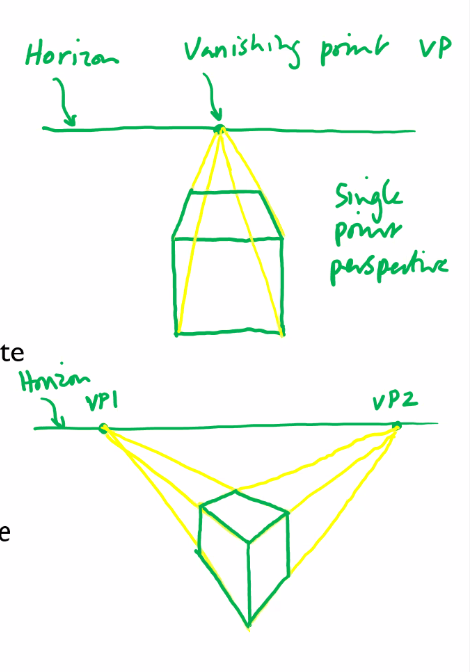 Horizon
Vanishing point VP
Single
point
perspective
te
Horizon
VP1
VP2
e